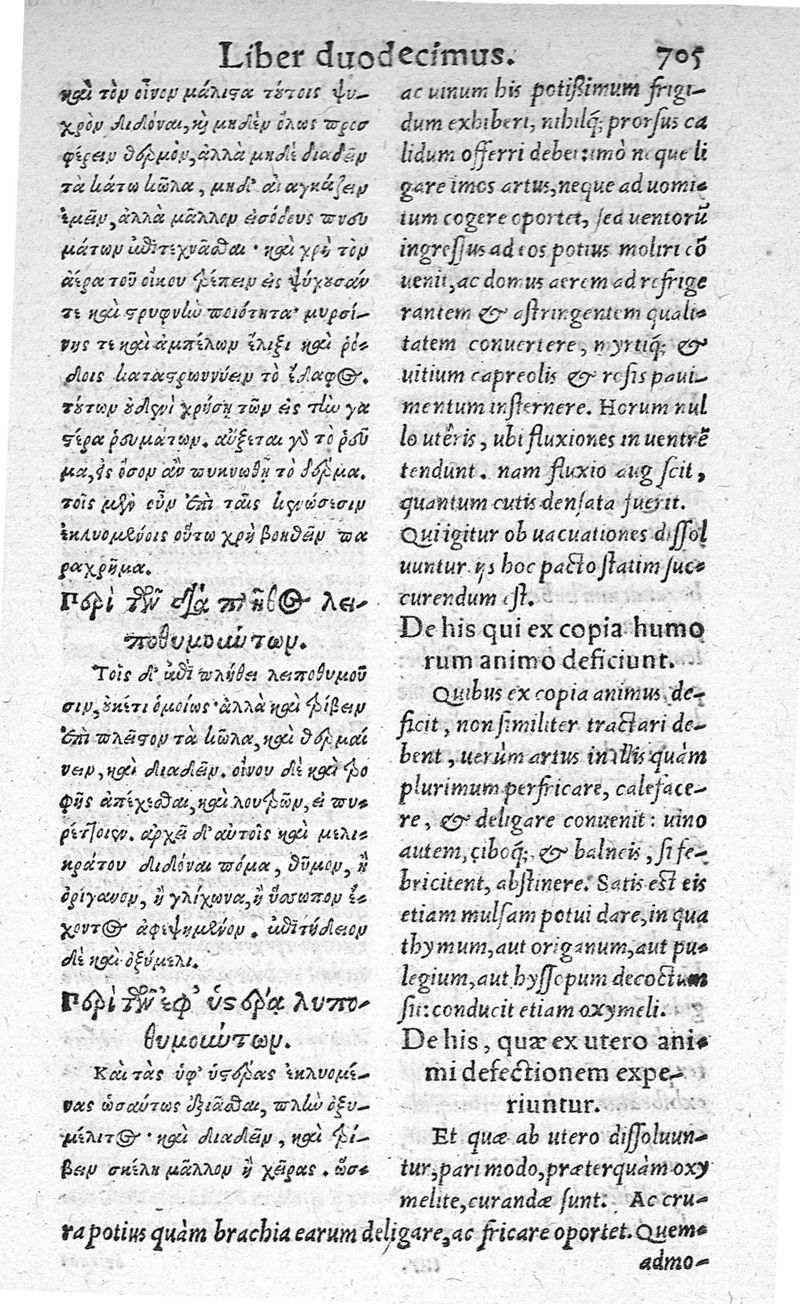 Liber duodecimus. 705
καὶ τὸν οἶνον μάλιστα τούτοις ψυ-
χρὸν διδόναι, καὶ μηδὲν ὅλως προσ
φέρειν θερμὸν, ἀλλὰ μηδὲ διαδεῖν
τὰ κάτω κῶλα, μηδ' ἀναγκάζειν
ἐμεῖν, ἀλλὰ μᾶλλον εἰσόδους πνευ
μάτων ἐπιτεχνᾶσθαι· καὶ χρὴ τὸν
ἀέρα τοῦ οἴκου τρέπειν εἰς ψύχουσάν
τε καὶ στρυφνὴν ποιότητα· μυρσί-
νης τε καὶ ἀμπέλων ἕλιξι καὶ ῥό-
δοις καταστρωννύειν τὸ ἔδαφος.
τούτων οὐδενὶ χρήση τῶν εἰς τὴν γα
στέρα ῥευμάτων. αὔξεται γὰρ τὸ ῥεῦ
μα, ἐς ὅσον ἂν πυκνωθῇ τὸ δέρμα.
τοῖς μὲν οὖν ἐπὶ ταῖς κενώσεσιν
ἐκλυομένοις οὕτω χρὴ βοηθεῖν πα
ραχρῆμα.
Περὶ τῶν διὰ πλῆθος λει-
ποθυμούντων.
Τοῖς δ' ἐπὶ πλήθει λειποθυμοῦ
σιν, οὐκέτι ὁμοίως· ἀλλὰ καὶ τρίβειν
ἐπὶ πλεῖστον τὰ κῶλα, καὶ θερμαί
νειν, καὶ διαδεῖν. οἴνου δὲ καὶ τρο
φῆς ἀπέχεσθαι, καὶ λουτρῶν, εἰ πυ-
ρέττοιεν. ἀρκεῖ δ' αὐτοῖς καὶ μελι-
κράτου διδόναι πόμα, θύμον, ἢ
ὀρίγανον, ἢ γλίχωνα, ἢ ὕσσωπον ἔ-
χοντος ἀφεψημένον. ἐπιτήδειον
δὲ καὶ ὀξύμελι.
Περὶ τῶν ἐφ' ὑστέρα λιπο-
θυμούντων.
Καὶ τὰς ὑφ' ὑστέρας ἐκλυομέ-
νας ὡσαύτως ἰᾶσθαι, πλὴν ὀξυ-
μέλιτος· καὶ διαδεῖν, καὶ τρί-
βειν σκέλη μᾶλλον ἢ χεῖρας. ὥσ-
ac uinum his potißimum frigi-
dum exhiberi, nihilq́; prorsus ca
lidum offerri debet: imò neque li
gare imos artus, neque ad uomi-
tum cogere oportet, sed uentorū
ingressus ad eos potius moliri cō
uenit, ac domus aerem ad refrige
rantem & astringentem quali-
tatem conuertere, myrtiq́; &
uitium capreolis & rosis paui-
mentum insternere. Horum nul
lo utêris, ubi fluxiones in uentrē
tendunt. nam fluxio augescit,
quantum cutis densata fuerit.
Qui igitur ob uacuationes dissol
uuntur ijs hoc pacto statim suc-
currendum est.
De his qui ex copia humo
rum animo deficiunt.
Quibus ex copia animus de-
ficit, non similiter tractari de-
bent, uerùm artus in illis quàm
plurimum perfricare, caleface-
re, & deligare conuenit: uino
autem, ciboq́;, & balneis, si fe-
bricitent, abstinere. Satis est eis
etiam mulsam potui dare, in qua
thymum, aut origanum, aut pu-
legium, aut hyssopum decoctum
sit: conducit etiam oxymeli.
De his, quæ ex utero ani-
mi defectionem expe-
riuntur.
Et quæ ab utero dissoluun-
tur, pari modo, præterquàm oxy
melite, curandæ sunt. Ac cru-
ra potius quàm brachia earum deligare, ac fricare oportet. Quem-
admo-